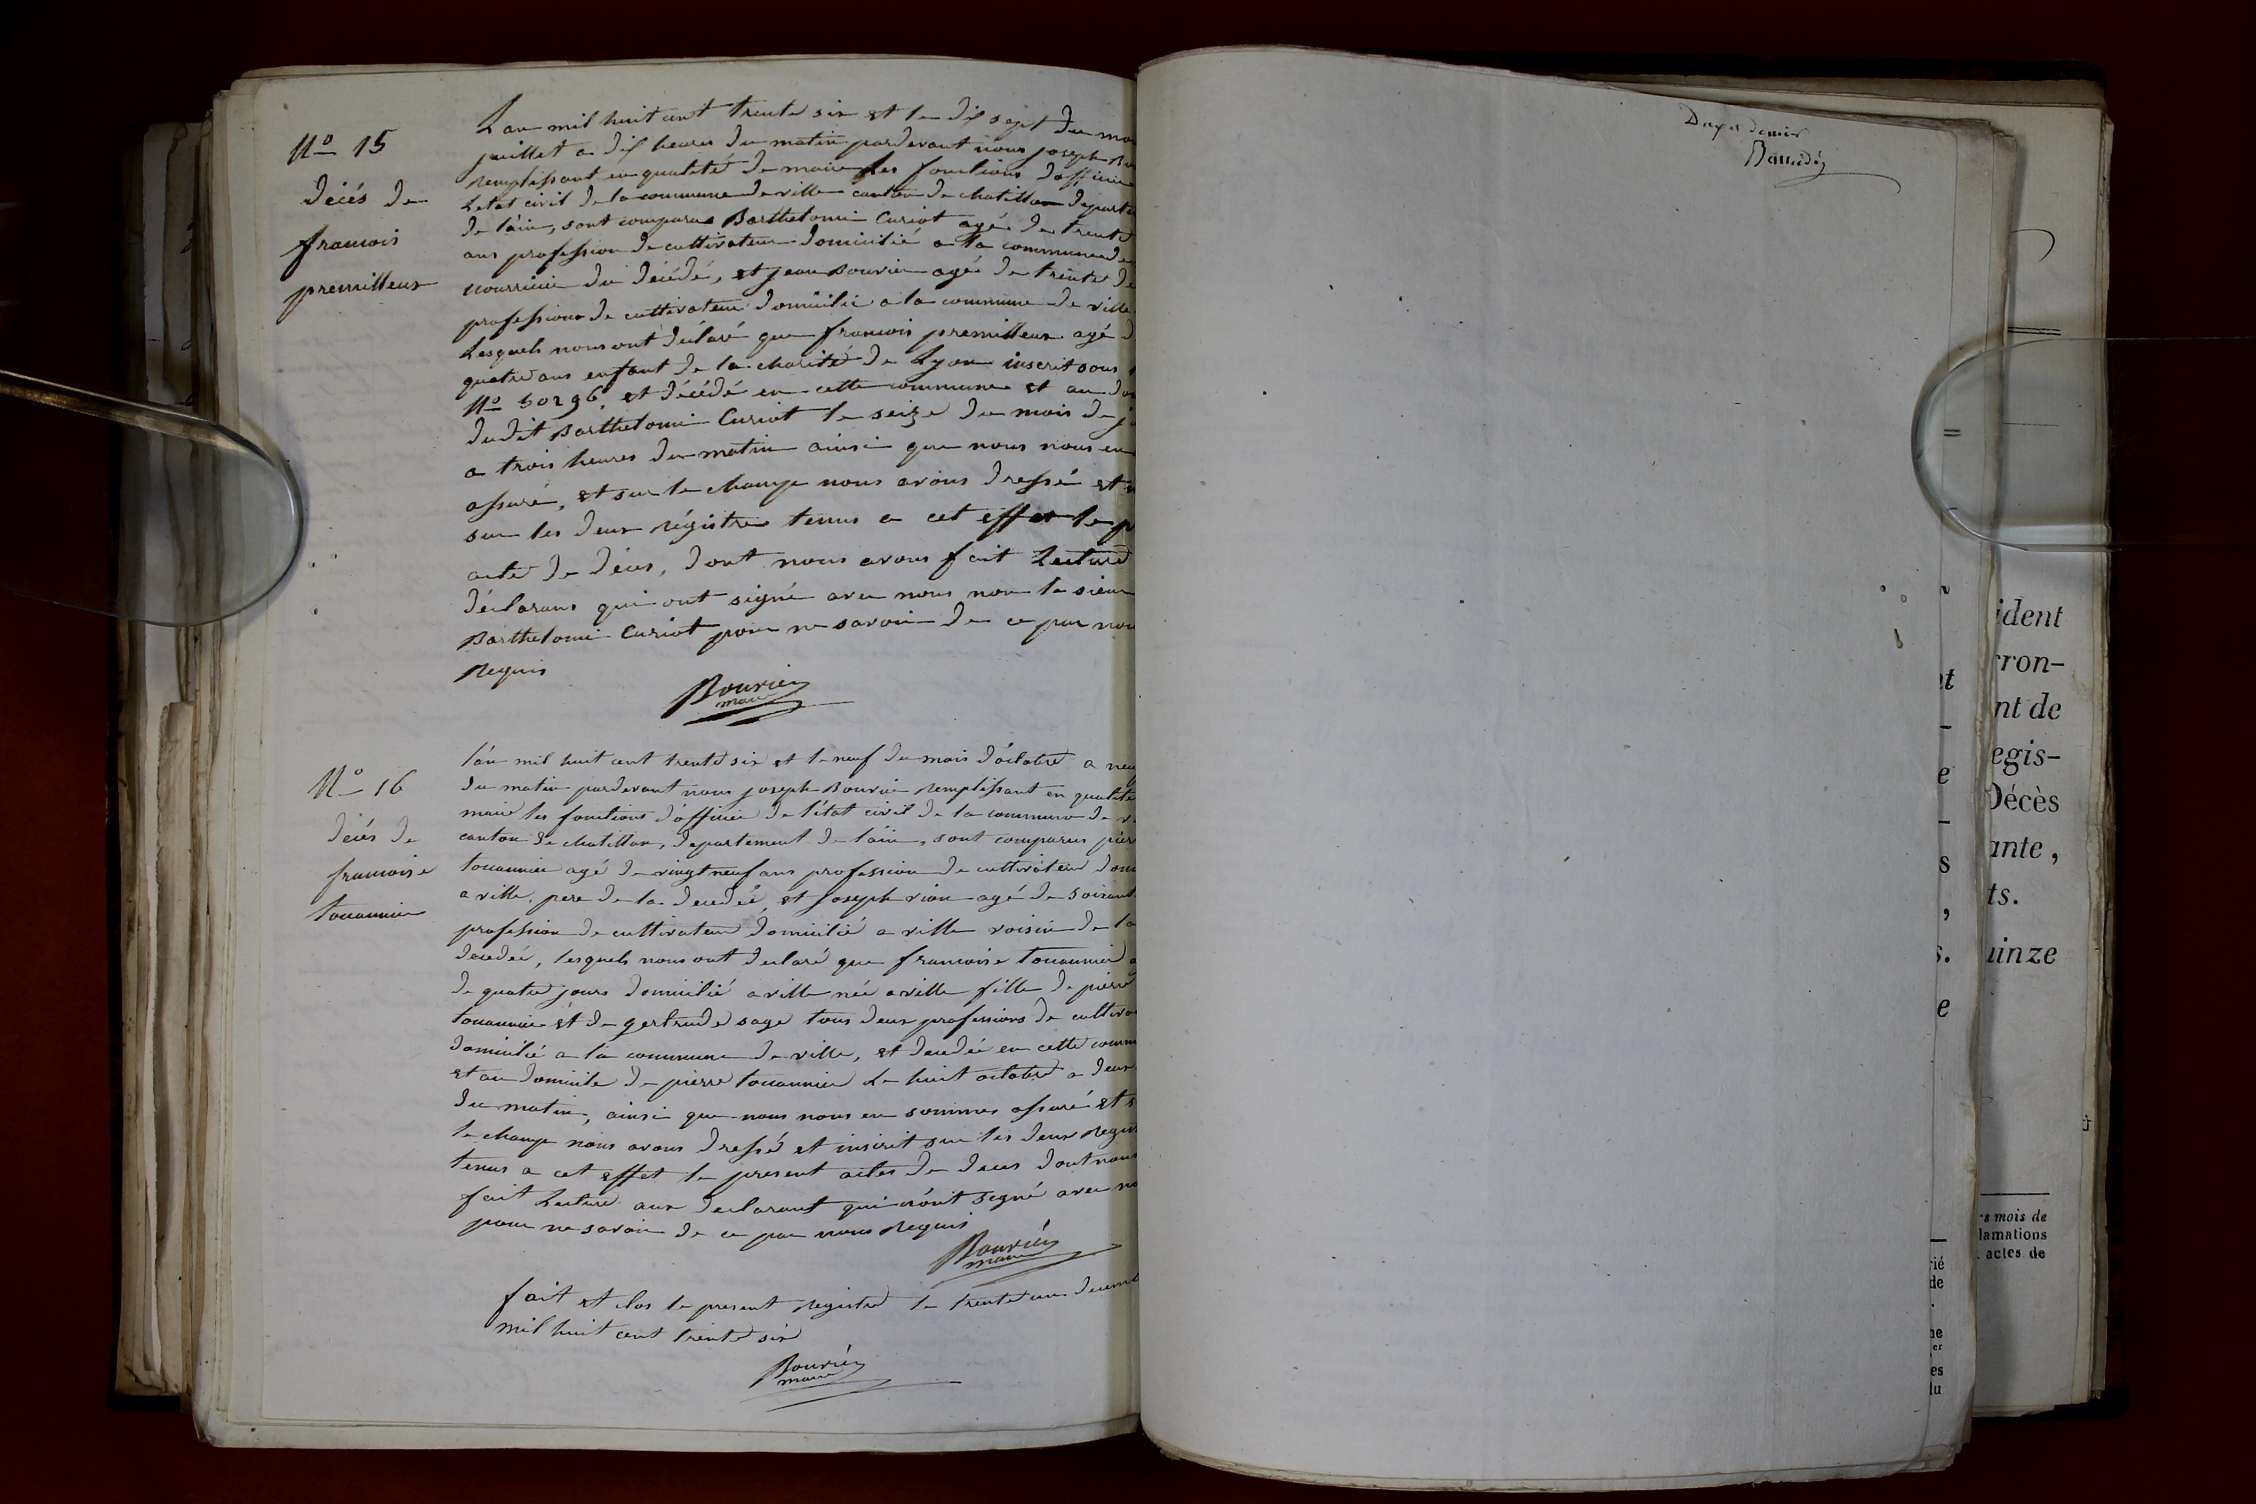 No 15
décés de
francois
premilleux
Lan mil huit cent trente six et le dix sept du
juillet a dix heures du matin pardevant nous joseph
Remplissant en qualité de maire les fonctions d'officier
Letat civil de la commune de ville canton de chatillon
de l'ain, sont comparus Barthelomi Curiot agé de trente
ans profession de cultivateur domicilié a la commune de
nourricier du décédé, et jean Bouvier agé de trente
profession de cultivateur domicilié a la commune de ville
Lesquels nous ont déclaré que francois premilleux agé
quatre ans enfant de la charité de Lyon inscrit sous
No 50296 et décédé en cette commune et au
dudit Barthelomi Curiot le seize du mois de
a trois heures du matin ainsi que nous nous en
assuré, et sur le champ nous avons dressé et
sur les deux régistres tenus a cet effet le
acte de décès, dont nous avons fait Lecture
déclarans qui ont signé avec nous non le sieur
Barthelomi Curiot pour ne savoir de ce par nous
Requis
Bouvier
maire
No 16
décés de
francoise
touaunier
l'an mil huit cent trente six et le neuf du mois d'octobre a
du matin pardevant nous joseph Bouvier Remplissant en qualité
maire les fonctions d'officier de l'état civil de la commune de
canton de chatillon, departement de l'ain, sont comparus
touaunier agé de vingt neuf ans profession de cultivateur
a ville, pere de la decedée, et joseph rion agé de
profession de cultivateur domicilié a ville voisin de la
decedée, lesquels nous ont declaré que francoise touaunier
de quatre jours domicilié a ville née a ville fille de pierre
touaunier et de gertrude sage tous deux professions de
domicilié a la commune de ville, et decedée en cette
et au domicile de pierre touaunier Le huit octobre a deux
du matin, ainsi que nous nous en sommes assuré et
le champ nous avons dressé et inscrit sur les deux
tenus a cet effet le present actes de deces dont nous
fait Lecture aux declarant qui n'ont signé avec
pour ne savoir de ce par nous Requis
Bouvier
maire
fait et clos le present registre le trente un
mil huit cent trente six
Bouvier
maire
ident
rron-
nt de
egis-
Décès
ante,
ts.
uinze
s mois de
lamations
actes de